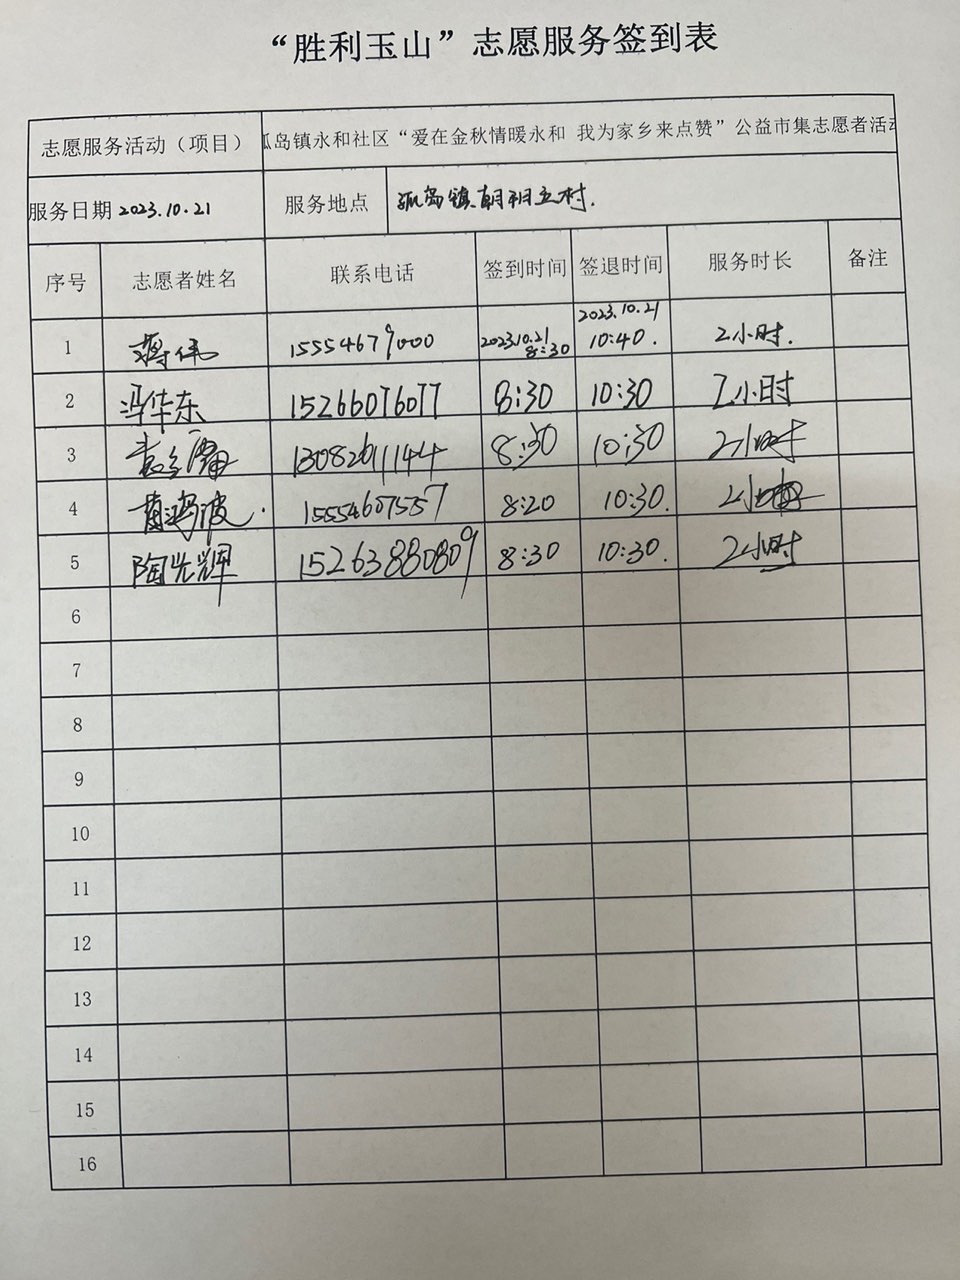 “胜利玉山”志愿服务签到表
志愿服务活动（项目） 孤岛镇永和社区“爱在金秋情暖永和 我为家乡来点赞”公益市集志愿者活动
服务日期 2023.10.21 服务地点 孤岛镇朝阳五村.
序号 志愿者姓名 联系电话 签到时间 签退时间 服务时长 备注
1 蒋伟 15554679000 2023.10.21 8:30 2023.10.21 10:40. 2小时.
2 冯华东 15266076077 8:30 10:30 2小时
3 13082611144 8:30 10:30 2小时
4 黄鸿波. 15554607557 8:20 10:30. 2小时
5 陶光辉 15263880809 8:30 10:30. 2小时
6
7
8
9
10
11
12
13
14
15
16